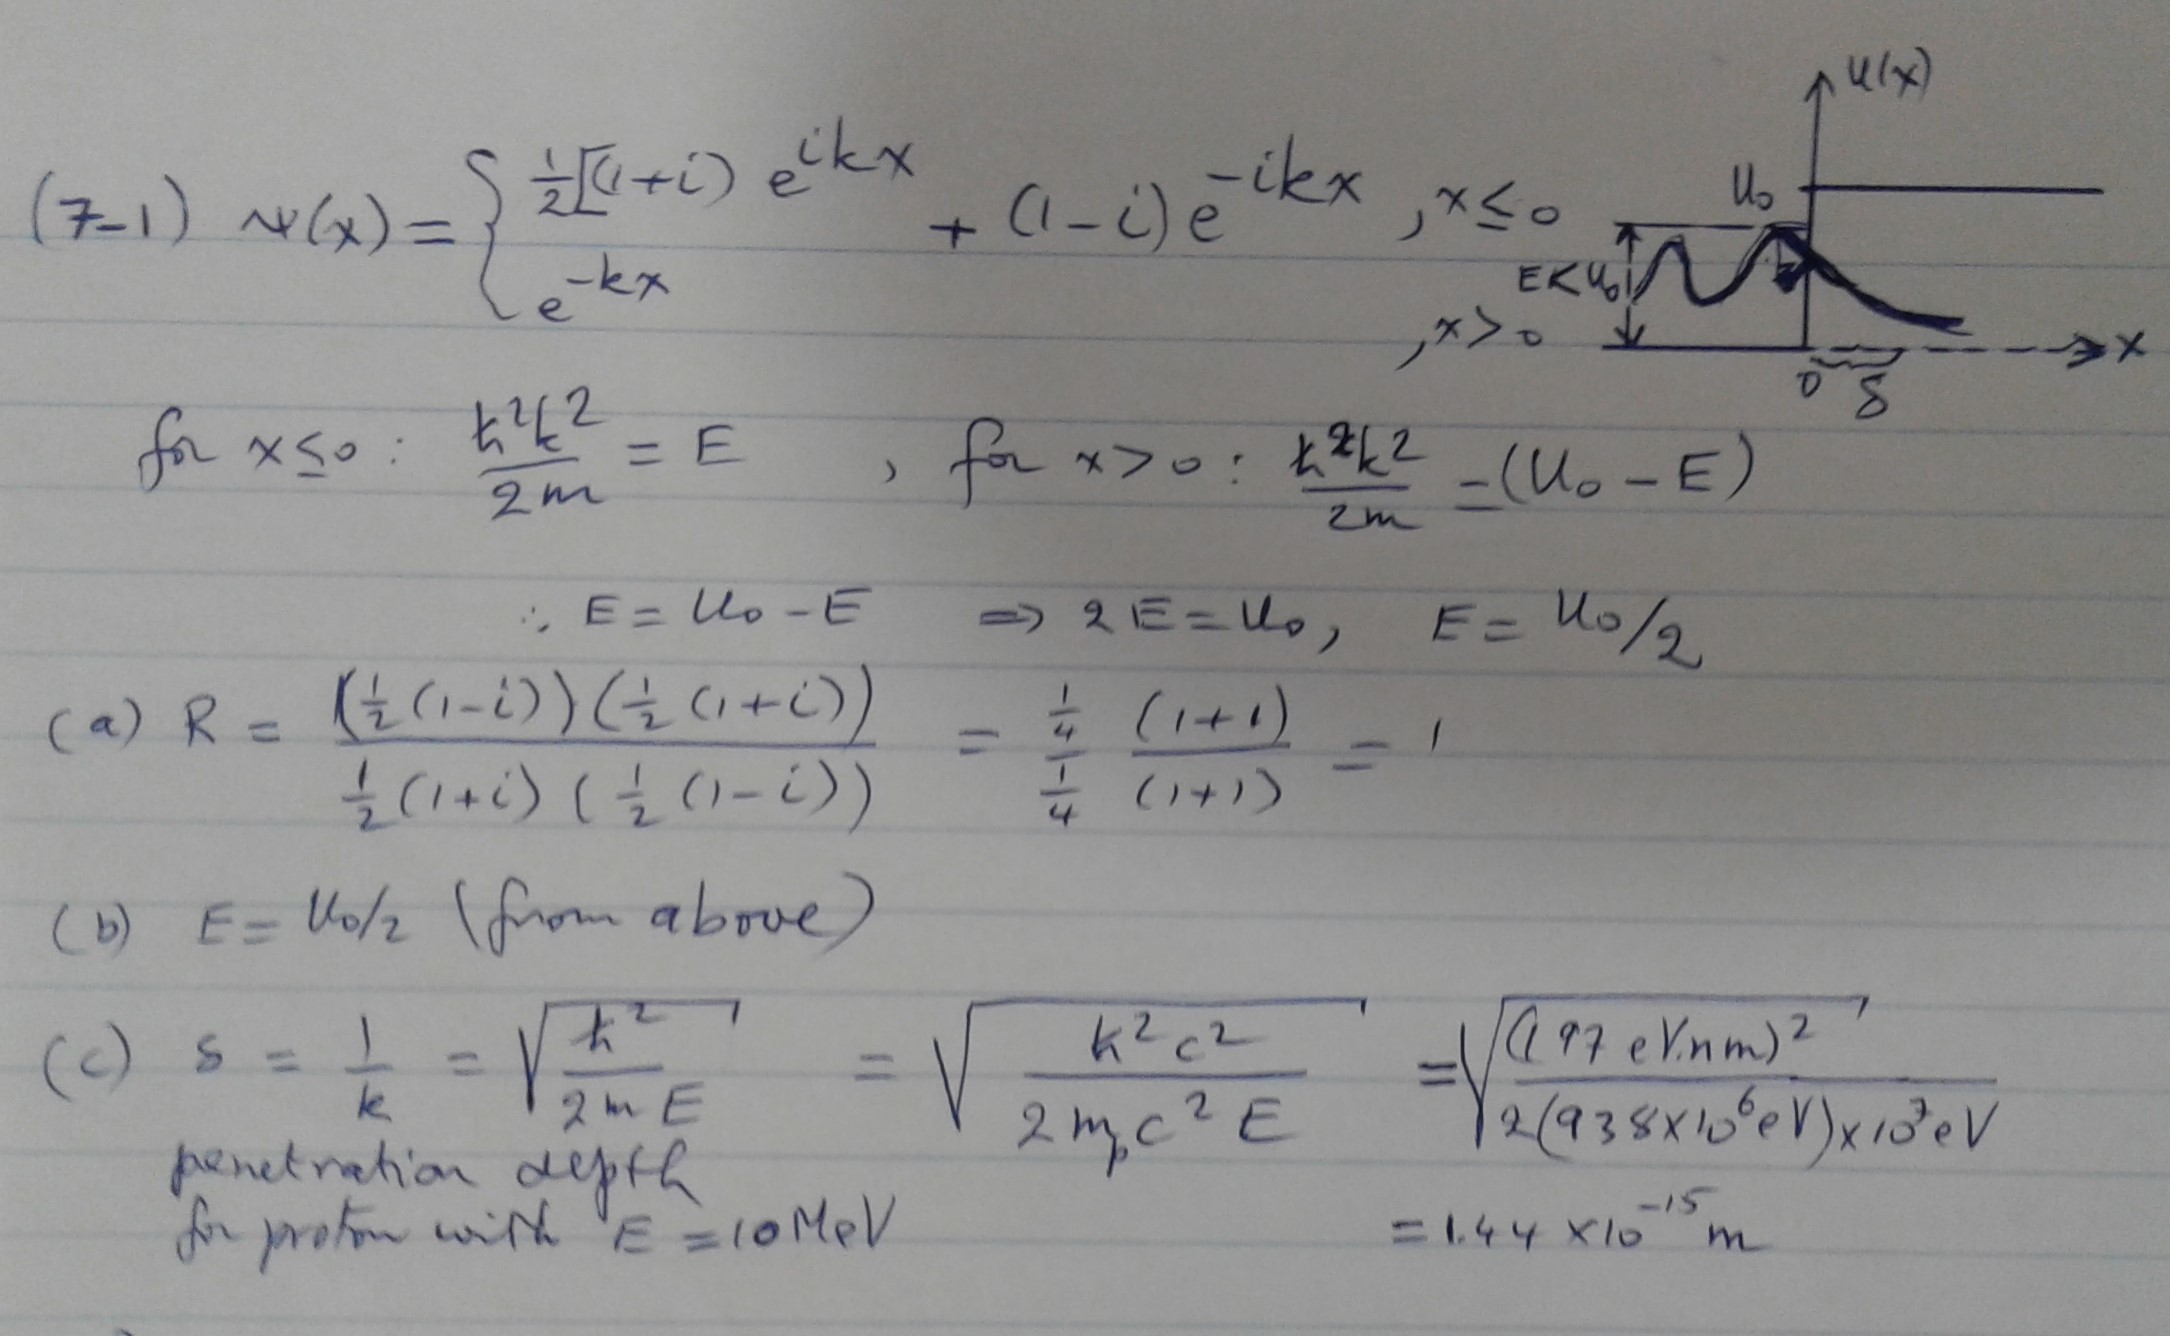 U(x)
(7-1) ψ(x) = { ½[(1+i) e^{ikx} + (1-i) e^{-ikx} , x ≤ 0
e^{-kx} , x > 0
U₀
E < U₀
x
0 δ
for x ≤ 0 : ħ²k²/2m = E , for x > 0 : ħ²k²/2m = (U₀ - E)
∴ E = U₀ - E ⇒ 2E = U₀, E = U₀/2
(a) R = (½(1-i))(½(1+i)) / ½(1+i)(½(1-i)) = ¼(1+1) / ¼(1+1) = 1
(b) E = U₀/2 (from above)
(c) δ = 1/k = √(ħ²/2mE) = √(ħ²c²/2m_pc²E) = √((197 eV.nm)²/2(938×10⁶eV)×10⁷eV)
penetration depth
for proton with E = 10 MeV = 1.44 × 10⁻¹⁵ m